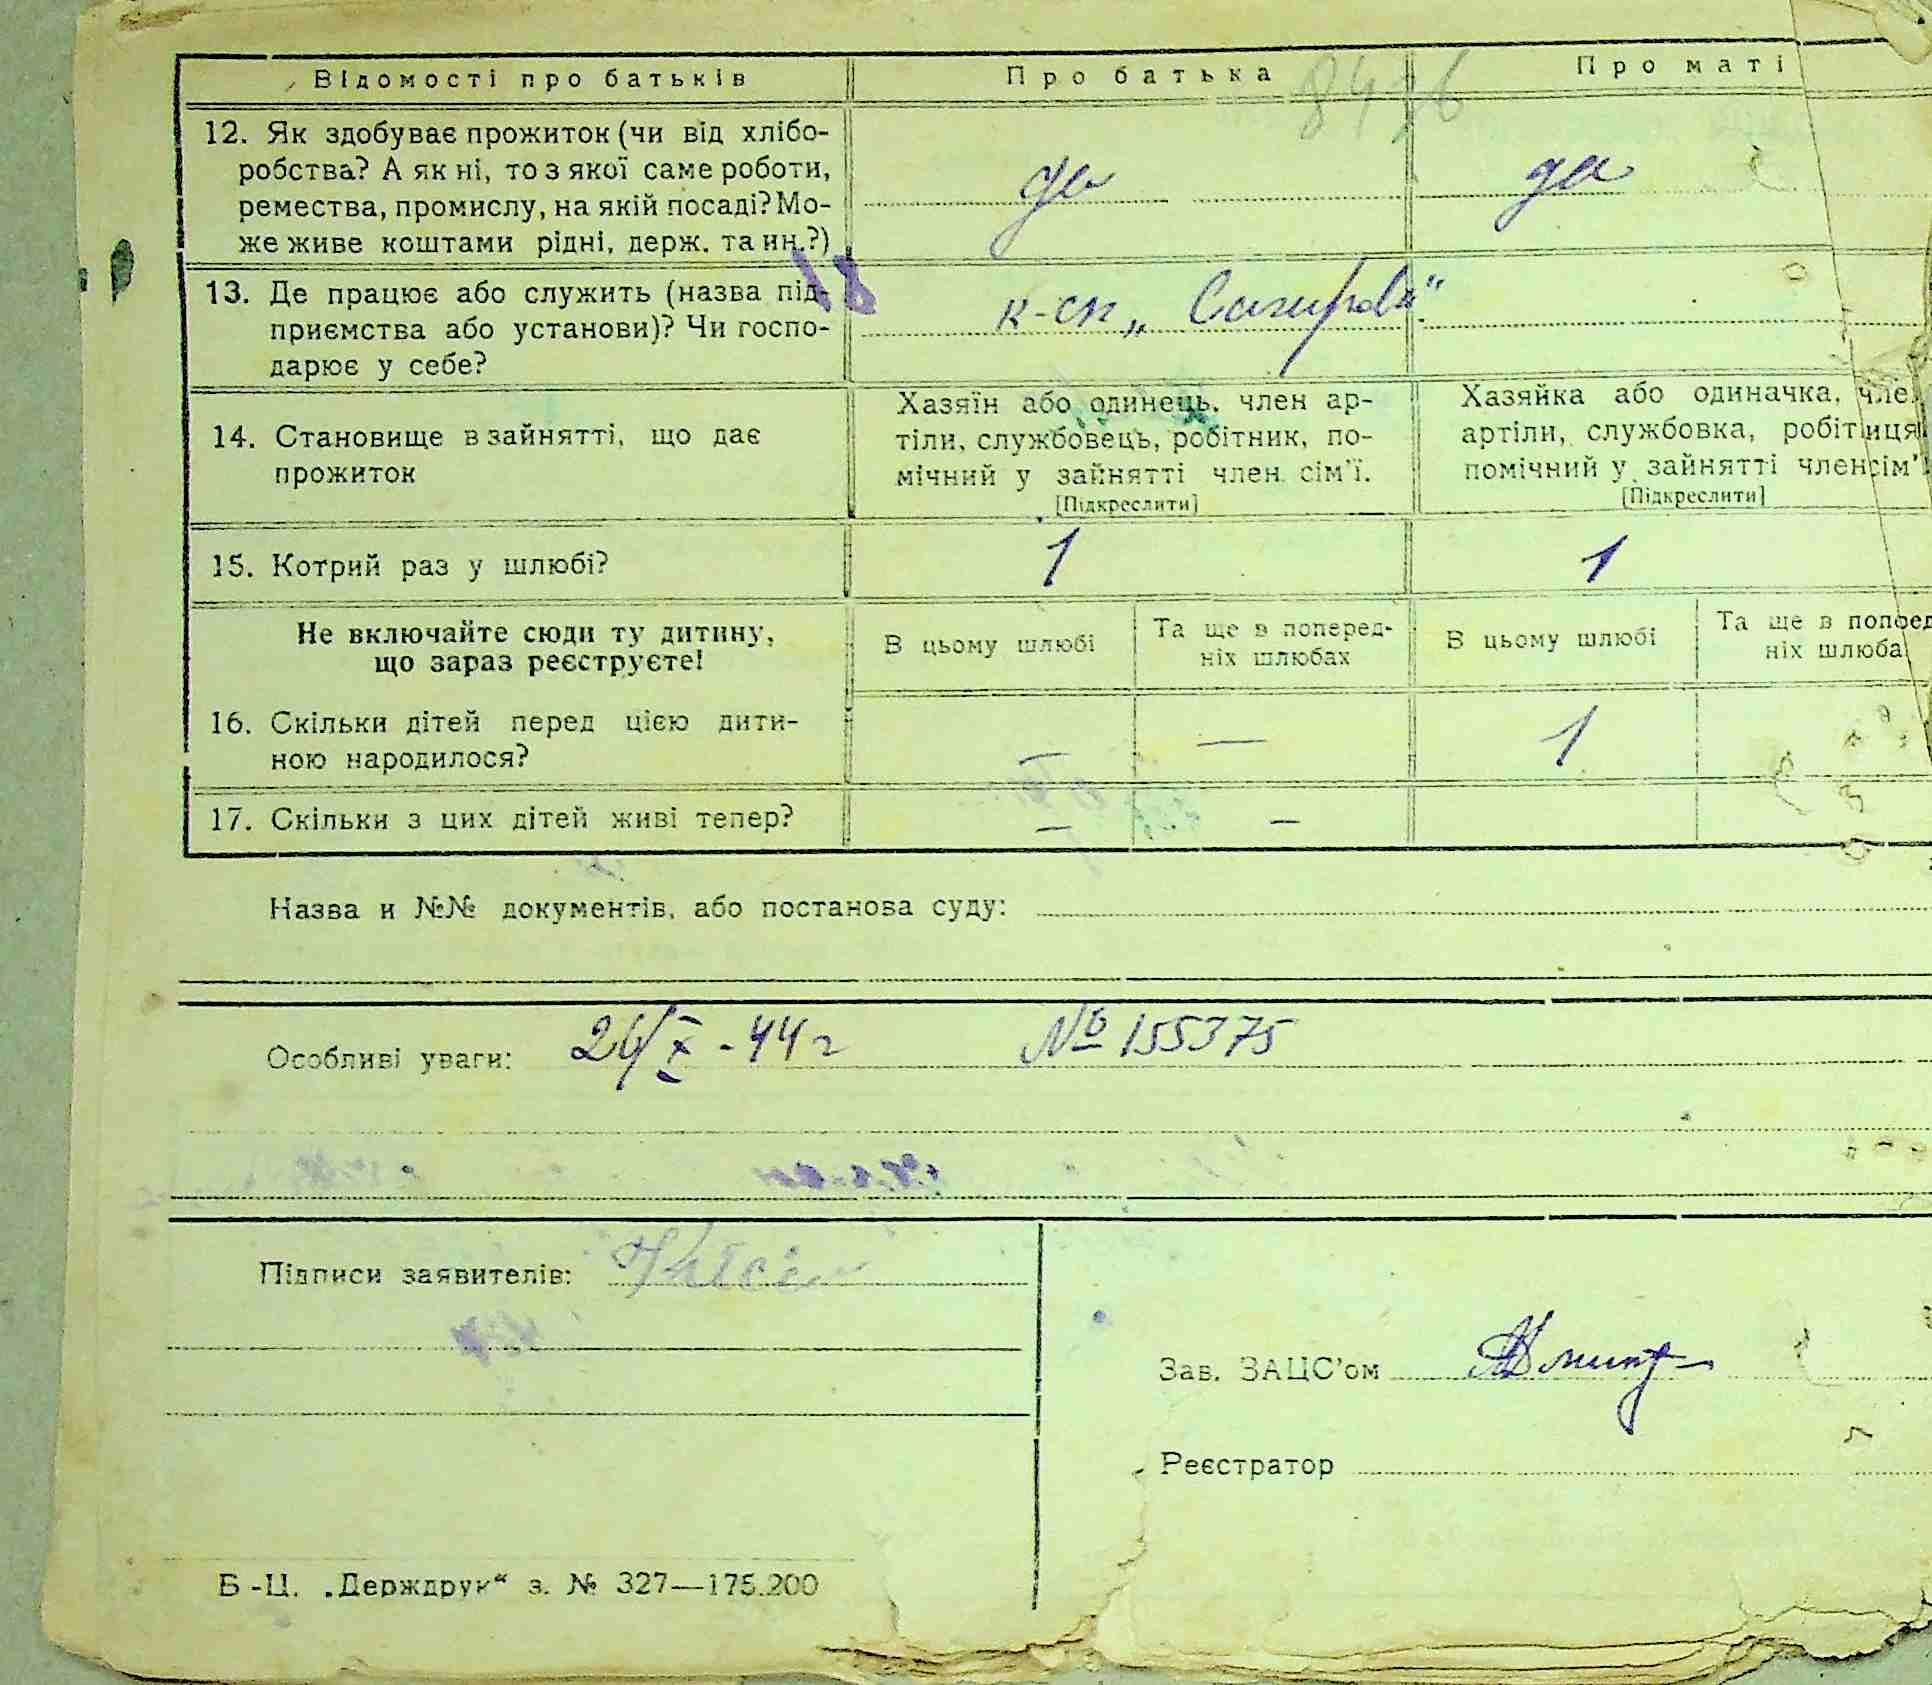 Відомості про батьків Про батька Про маті
8426
12. Як здобуває прожиток (чи від хлібо-
робства? А як ні, то з якої саме роботи,
ремества, промислу, на якій посаді? Мо-
же живе коштами рідні, держ. та ин.?)
да да
18
13. Де працює або служить (назва під-
приємства або установи)? Чи госпо-
дарює у себе?
к-сп „
14. Становище в зайнятті, що дає
прожиток
Хазяїн або одинець, член ар-
тіли, службовець, робітник, по-
мічний у зайнятті член сім'ї.
[Підкреслити]
Хазяйка або одиначка, чле
артіли, службовка, робітниця
помічний у зайнятті член сім'ї
[Підкреслити]
15. Котрий раз у шлюбі? 1 1
Не включайте сюди ту дитину,
що зараз реєструєте!
В цьому шлюбі
Та ще в поперед-
ніх шлюбах
В цьому шлюбі
Та ще в поперед
ніх шлюба
16. Скільки дітей перед цією дити-
ною народилося?
— — 1
17. Скільки з цих дітей живі тепер? — —
Назва и №№ документів, або постанова суду:
Особливі уваги: 26/X - 44 г № 155375
Підписи заявителів:
Зав. ЗАЦС'ом
Реєстратор
Б-Ц. „Держдрук“ з. № 327—175.200